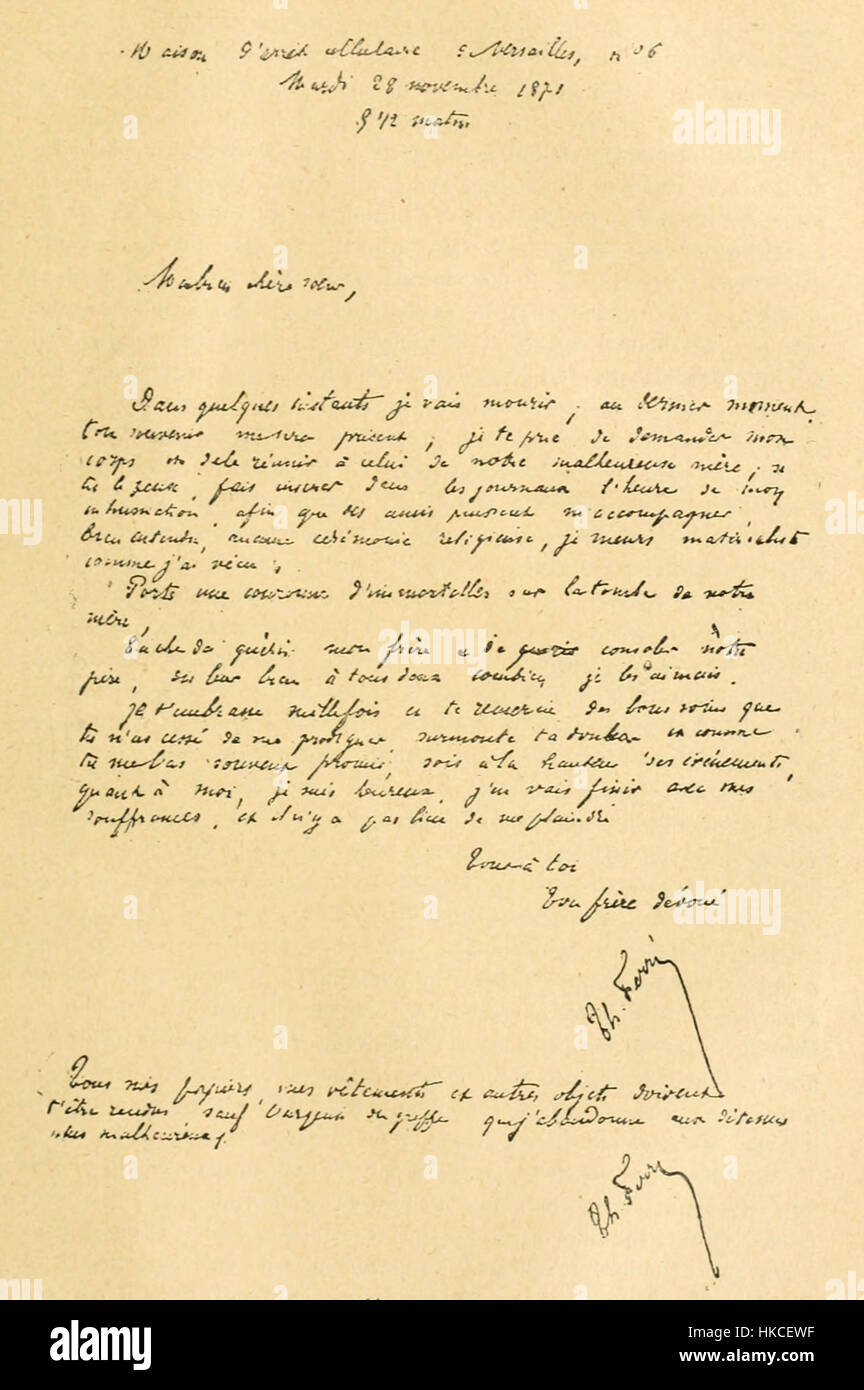 Maison d'arrêt cellulaire de Versailles, n° 6
Mardi 28 novembre 1871
5 1/2 matin
Ma bien chère sœur,
Dans quelques instants je vais mourir ; au dernier moment
ton souvenir me sera présent ; je te prie de demander mon
corps et de le réunir à celui de notre malheureuse mère ; si
tu le peux, fais insérer dans les journaux l'heure de mon
inhumation, afin que des amis puissent m'accompagner,
bien entendu, aucune cérémonie religieuse, je meurs matérialiste
comme j'ai vécu.
Porte une couronne d'immortelles sur la tombe de notre
mère,
Tâche de guérir mon frère et de consoler notre
père, dis leur bien à tous deux combien je les aimais.
Je t'embrasse mille fois et te remercie des bons soins que
tu n'as cessé de me prodiguer, surmonte ta douleur et comme
tu me l'as souvent promis, sois à la hauteur des événements,
quant à moi, je suis heureux, j'en vais finir avec mes
souffrances, et il n'y a pas lieu de me plaindre
Tout à toi
Ton frère dévoué
Th. Ferré
Tous mes papiers, mes vêtements et autres objets doivent
t'être rendus sauf l'argent du greffe que j'abandonne aux détenus
malheureux.
Th. Ferré
a
alamy
alamy
HKCEWF
www.alamy.com